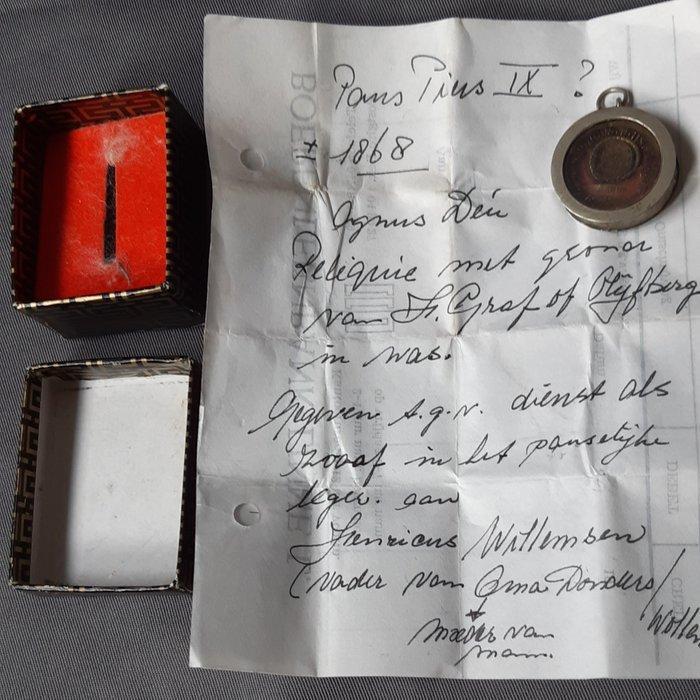 Paus Pius IX ?
± 1868
Agnus Déi
Reliquie met grond
van H. Graf of Olijfberg
in was.
Gegeven t.g.v. dienst als
zoaaf in het pauselijke
leger aan
Henricus Willemsen
(vader van Oma Donders/
moeder van
mam.